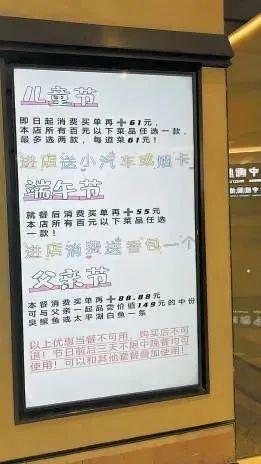 儿童节
即日起消费买单再+61元，
本店所有百元以下菜品任选一款，
最多选两款，每道菜61元！
进店送小汽车或烟卡
端午节
就餐后消费买单再+55元
本店所有百元以下菜品任选一款
进店消费送香包一个
父亲节
本餐消费买单再+88.88元
可与父亲一起品尝价值149元的中份
臭鳜鱼或太平湖白鱼一条
以上优惠当餐不可用，购买后不可
退！节日前后三天不限中晚餐均可
使用！可以和其他套餐叠加使用！